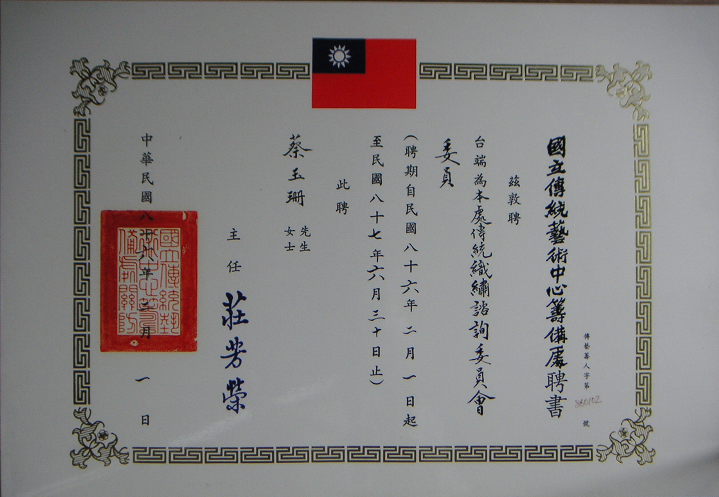 國立傳統藝術中心籌備處聘書
傳藝籌人字第 號
茲敦聘
台端為本處傳統織繡諮詢委員會
委員
(聘期自民國八十六年二月一日起
至民國八十七年六月三十日止)
此聘
蔡玉珊 先生
女士
主任 莊芳榮
中華民國八十六年二月一日
國立傳統藝術中心籌備處關防